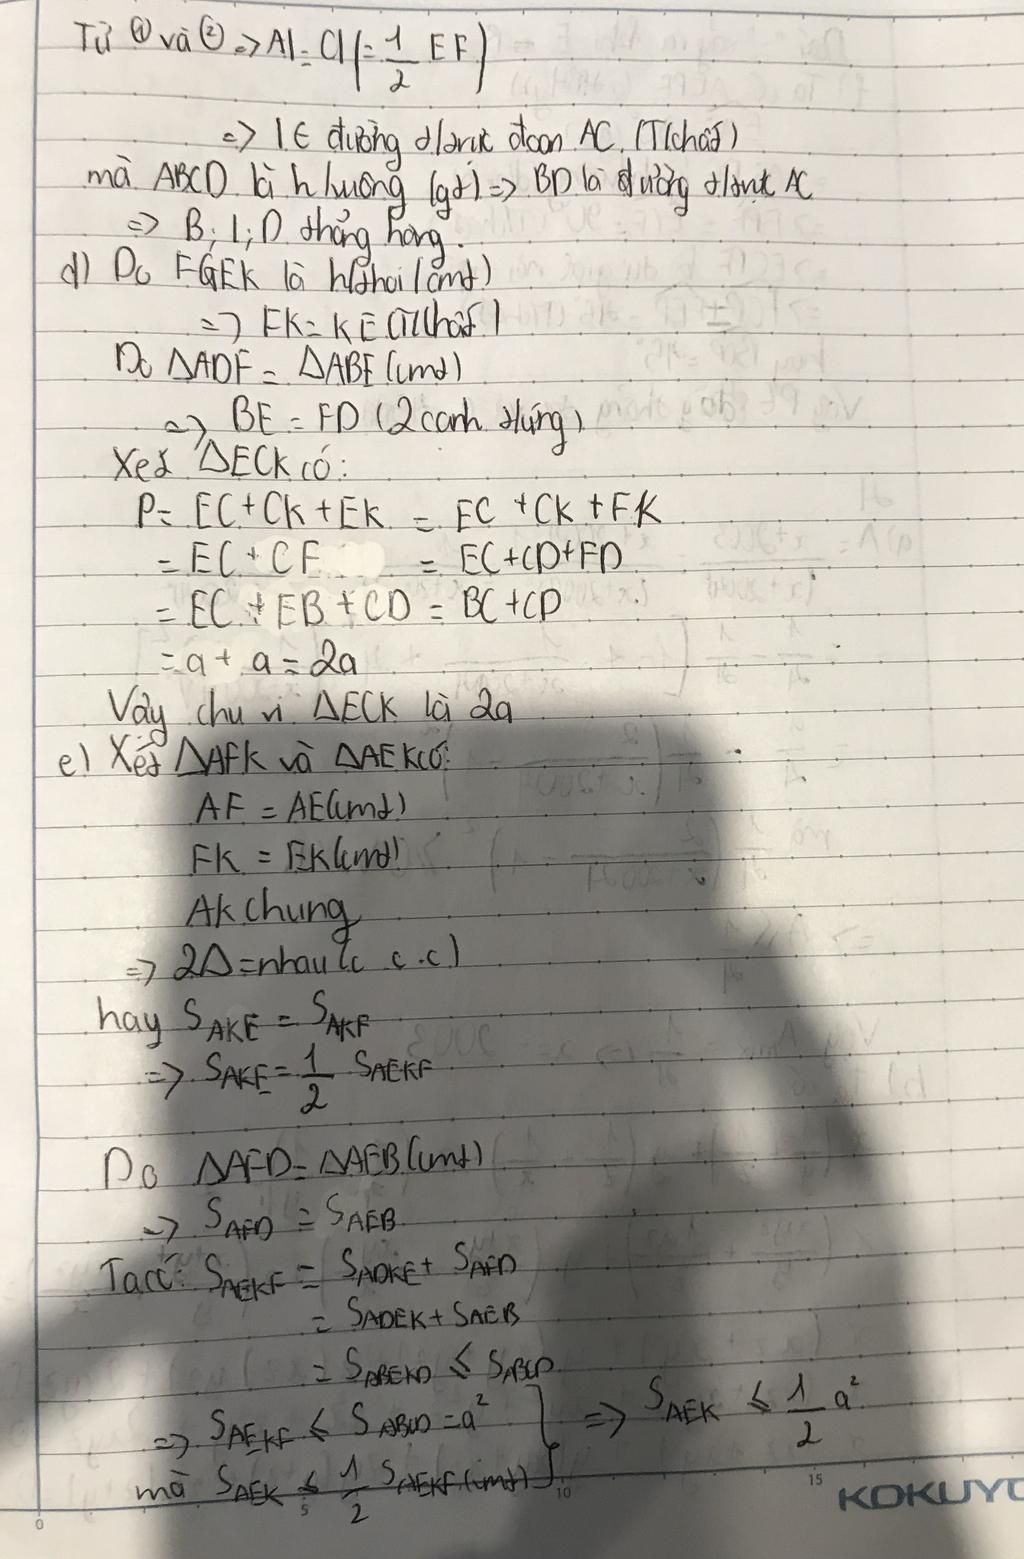 Từ ① và ② => AI = CI (= 1/2 EF)
=> I ∈ đường t/trực đoạn AC (T/chất)
mà ABCD là h/vuông (gt) => BD là đường t/trực AC
=> B; I; D thẳng hàng.
d) Do FGEK là h/thoi (cmt)
=> FK = KE (T/chất)
Do ΔADF = ΔABE (cmt)
=> BE = FD (2 cạnh t/ứng)
Xét ΔECK có:
P = EC + CK + EK = EC + CK + FK
= EC + CF = EC + CD + FD
= EC + EB + CD = BC + CD
= a + a = 2a
Vậy chu vi ΔECK là 2a
e) Xét ΔAFK và ΔAEK có:
AF = AE (cmt)
FK = EK (cmt)
AK chung
=> 2Δ = nhau (c.c.c)
hay S_AKE = S_AKF
=> S_AKE = 1/2 S_AEKF
Do ΔAFD = ΔAEB (cmt)
=> S_AFD = S_AEB
Ta có: S_AEKF = S_ADKE + S_AFD
= S_ADEK + S_AEB
= S_ABEKD ≤ S_ABCD
=> S_AEKF ≤ S_ABCD = a² } => S_AEK ≤ 1/2 a²
mà S_AEK ≤ 1/2 S_AEKF (cmt)
0 5 10 15 KOKUYO